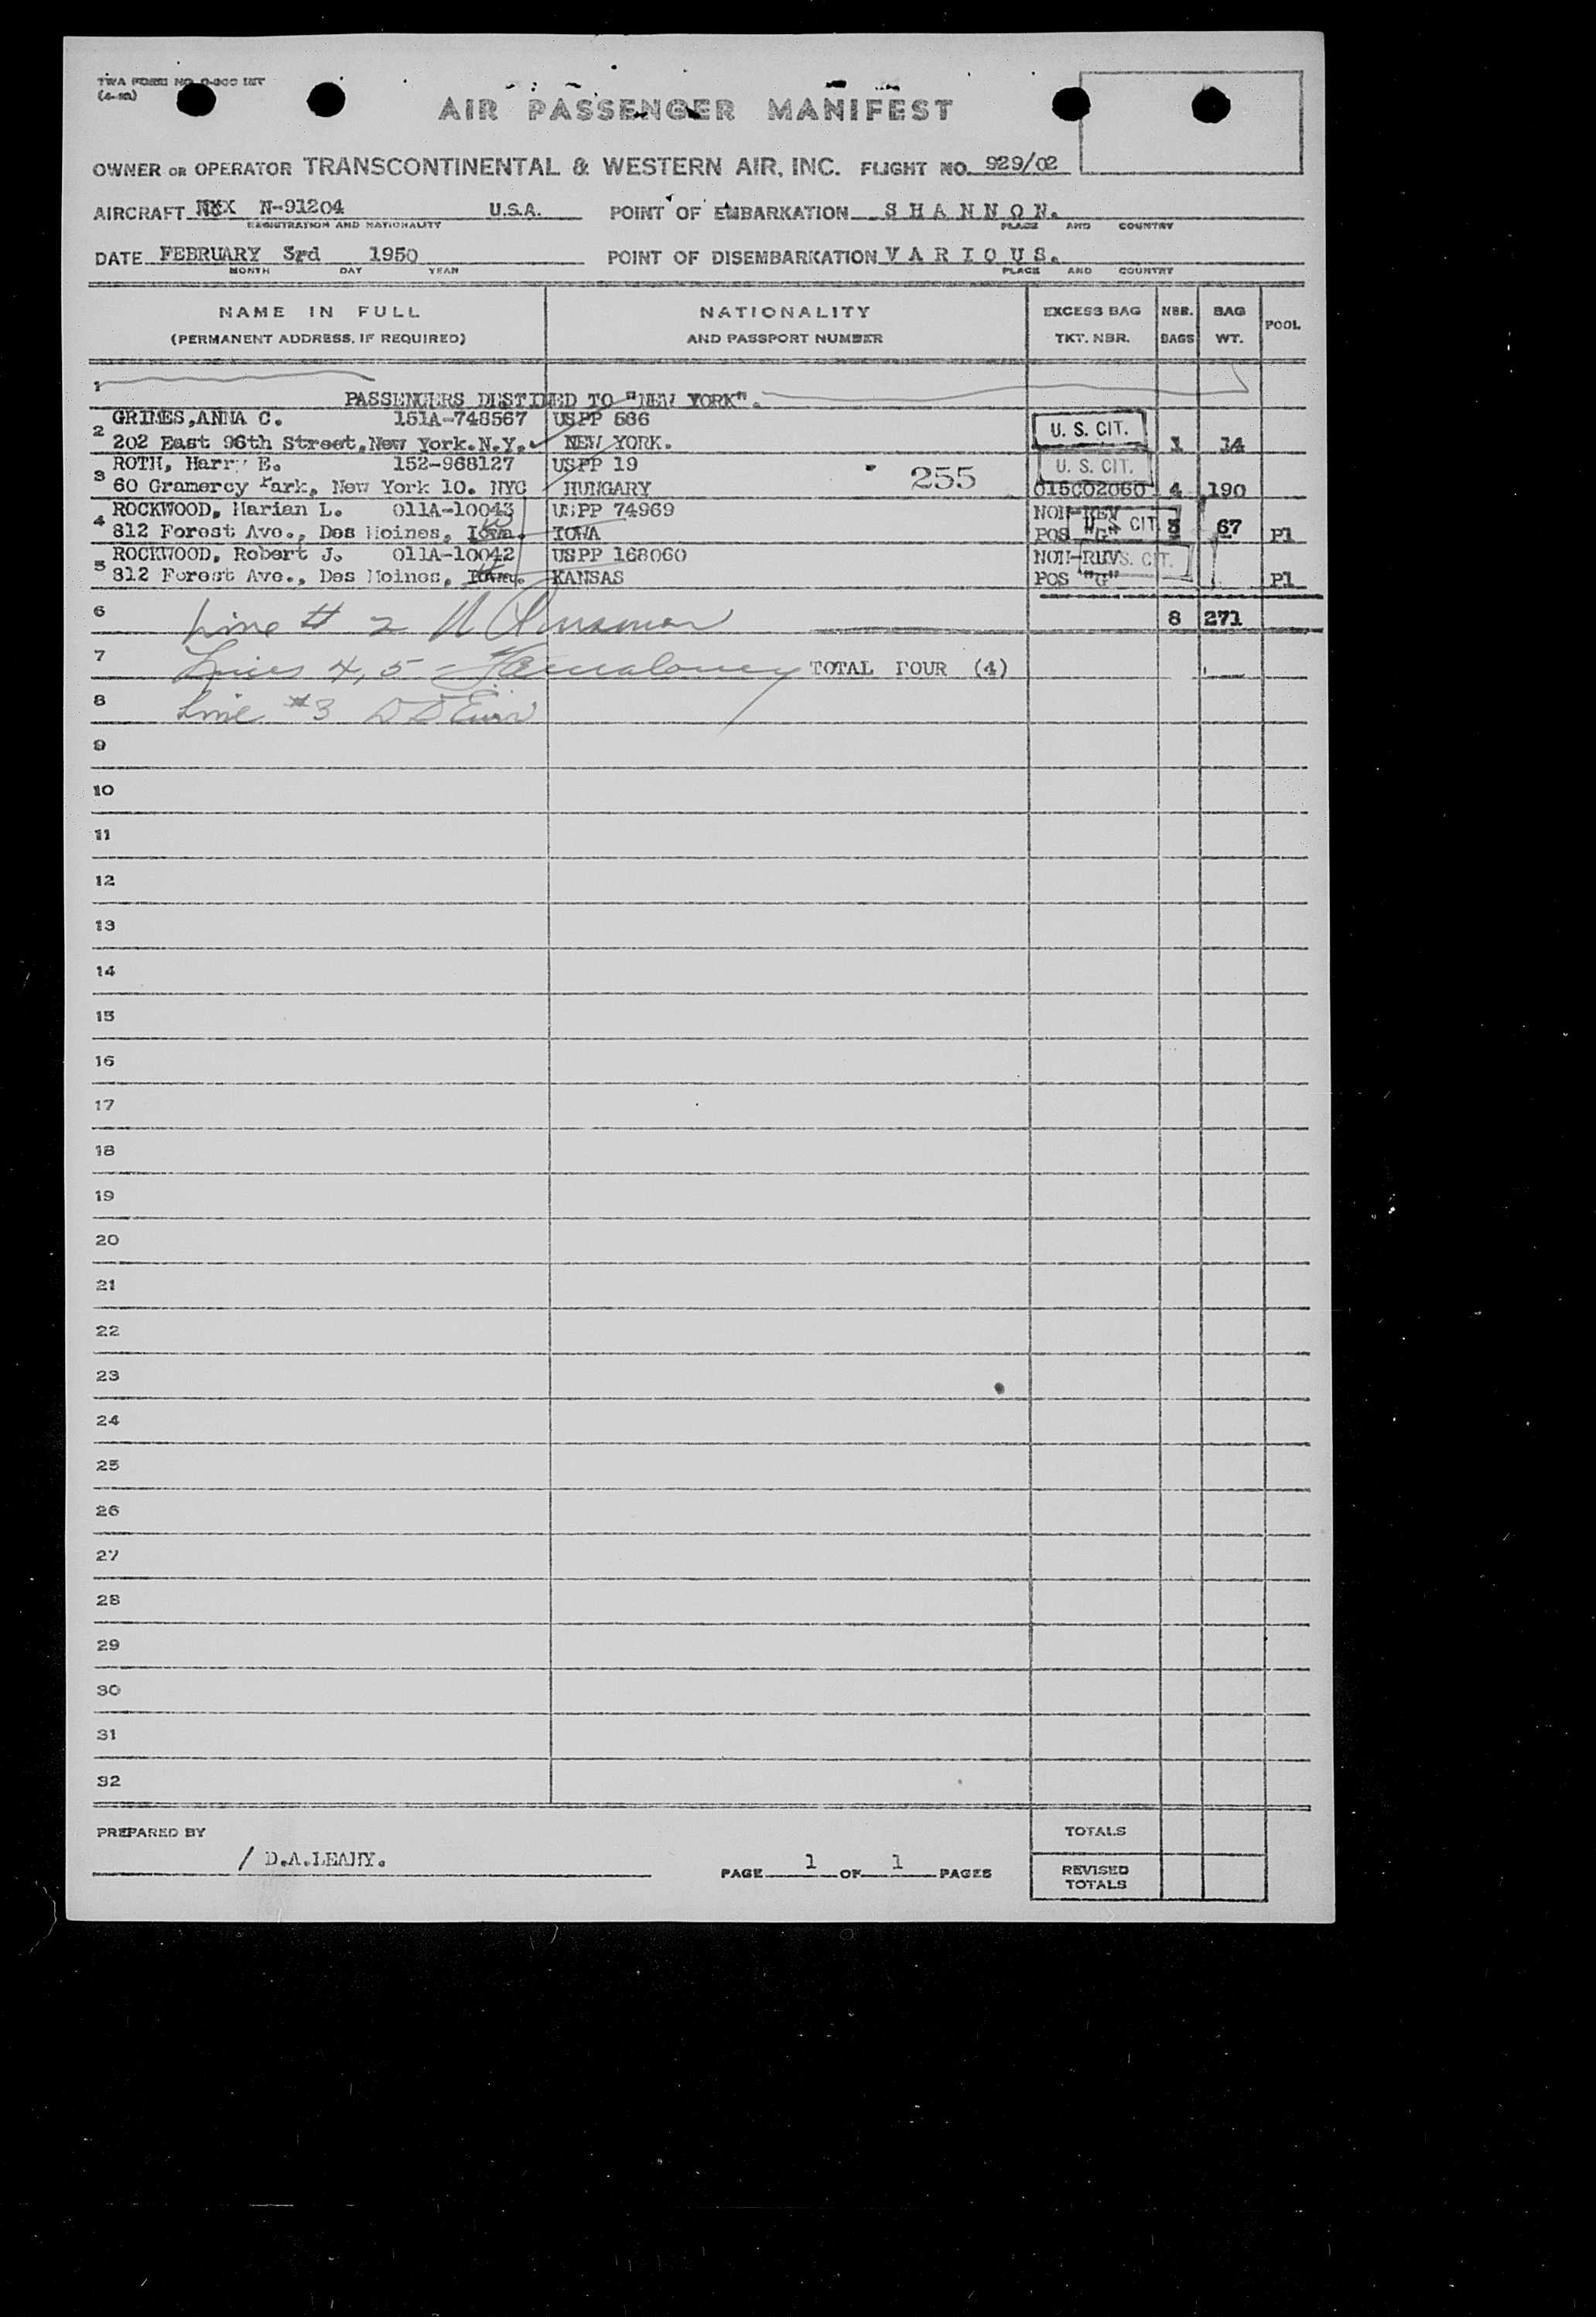 TWA FORM NO. O-300 INT
AIR PASSENGER MANIFEST
OWNER OR OPERATOR TRANSCONTINENTAL & WESTERN AIR, INC. FLIGHT NO. 929/02
AIRCRAFT N-91204 U.S.A. POINT OF EMBARKATION S H A N N O N.
REGISTRATION AND NATIONALITY PLACE AND COUNTRY
DATE FEBRUARY 3rd 1950 POINT OF DISEMBARKATION V A R I O U S.
MONTH DAY YEAR PLACE AND COUNTRY
NAME IN FULL NATIONALITY EXCESS BAG NBR. BAG POOL
(PERMANENT ADDRESS, IF REQUIRED) AND PASSPORT NUMBER TKT. NBR. BAGS WT.
1
PASSENGERS DESTINED TO "NEW YORK".
GRIMES,ANNA C. 151A-748567 USPP 586 U. S. CIT.
2 202 East 96th Street,New York.N.Y. NEW YORK. 1 14
ROTH, Harry E. 152-968127 USPP 19 255 U. S. CIT.
3 60 Gramercy Park, New York 10. NYC HUNGARY 015C02060 4 190
ROCKWOOD, Marian L. 011A-10043 USPP 74969 NON-REV
4 812 Forest Ave., Des Moines, Iowa. IOWA POS "G" U. S. CIT. 3 67 P1
ROCKWOOD, Robert J. 011A-10042 USPP 168060 NON-REV U. S. CIT.
5 812 Forest Ave., Des Moines, Iowa. KANSAS POS "G" P1
6 Line # 2 8 271
7 Lines 4, 5 - TOTAL FOUR (4)
8 Line #3
9
10
11
12
13
14
15
16
17
18
19
20
21
22
23
24
25
26
27
28
29
30
31
32
PREPARED BY TOTALS
/ D.A.LEAHY. PAGE 1 OF 1 PAGES REVISED
TOTALS